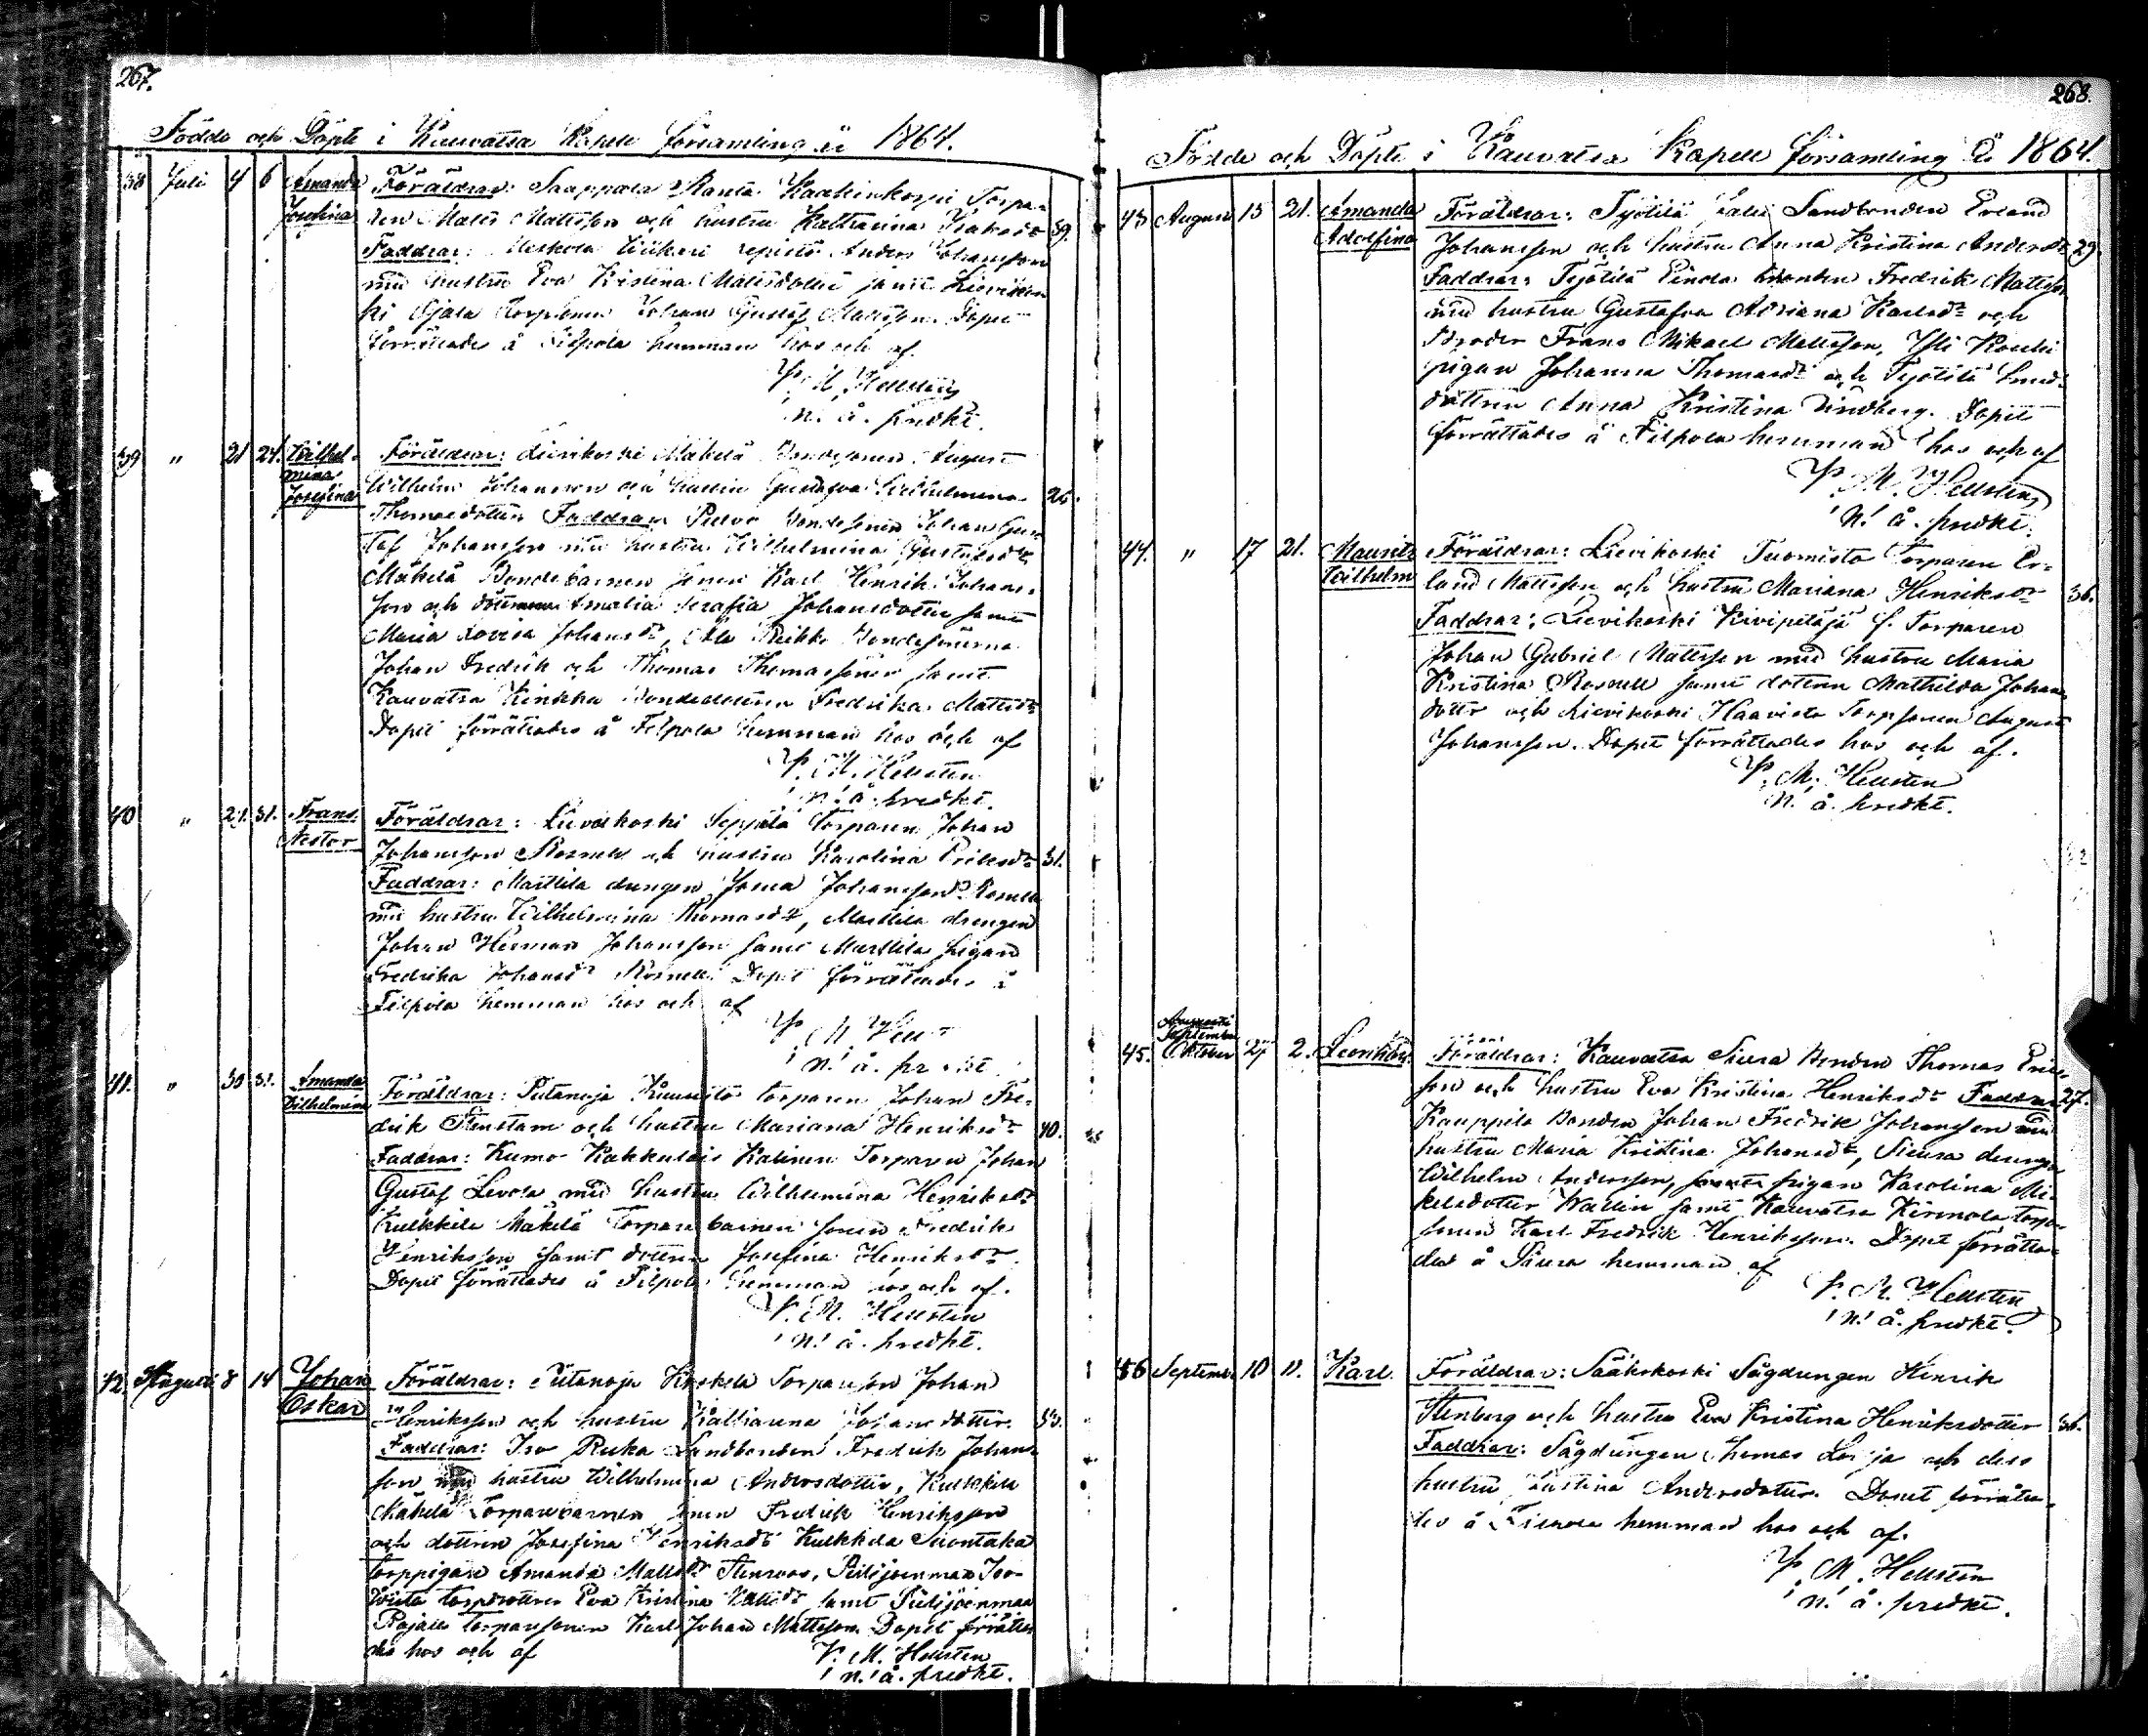 267.
Födde och Döpte i Kauvatsa Kapell församling år 1864.
38 Juli 4 6 Amanda Josefina
Föräldrar: Saappala Ranta Torpa-
ren Matts Mattsson och hustru Katharina Isaksdr 39.
Faddrar: Anders Johansson
med hustru Eva Kristina Mattsdotter samt Lievikos-
ki Ojala Torpsonen Johan Gustaf Mattsson. Dopet
förrättades å Filpola hemman hos och af
P. M. Hellsten
n. å. predkt.
39 " 21 24. Wilhel-mina Josefina
Föräldrar: Lievikoski Mäkelä Bondesonen August
Wilhelm Johansson och hustru Gustafva Wilhelmina 26.
Thomasdotter Faddrar: Bondesonen Johan Gus-
taf Johansson med hustru Wilhelmina Gustafsdr
Mäkelä Bondebarnen sonen Karl Henrik Johans-
son och döttrarna Amalia Serafia Johansdotter samt
Maria Lovisa Johansdr, Bondesönerna
Johan Fredrik och Thomas Thomassöner samt
Kauvatsa Kinkka Bondedottren Fredrika Mattsdr
Dopet förrättades å Filpola hemman hos och af
P. M. Hellsten
n. å. predkt.
40 " 21 31. Frans Nestor
Föräldrar: Lievikoski Seppälä Torparen Johan
Johansson Rosnell och hustru Karolina Eriksdr 31.
Faddrar: Marttila drengen Josua Johansson Rosnell
med hustru Wilhelmina Thomasdr, Marttila drengen
Johan Herman Johansson samt Marttila pigan
Fredrika Johansdr Rosnell. Dopet förrättades å
Filpola hemman hos och af
P. M. Hell
n. å. pr kt.
41. " 30 31. Amanda Wilhelmina
Föräldrar: Piitanoja Kuusisto torparen Johan Fre-
drik Stenstam och hustru Mariana Henriksdr 40.
Faddrar: Kumo Kakkulais Kalinen Torparen Johan
Gustaf Levola med hustru Wilhelmina Henriksdr
Kulkkila Mäkelä Torparebarnen sonen Fredrik
Henriksson samt dottren Josefina Henriksdr.
Dopet förrättades å Filpola hemman hos och af.
P. M. Hellsten
n. å. predkt.
42 Augusti 8 14 Johan Oskar
Föräldrar: Piitanoja Koskela Torparson Johan
Henriksson och hustru Katharina Johansdotter 33.
Faddrar: Iso Ruka Landbonden Fredrik Johans-
son med hustru Wilhelmina Andersdotter, Kulkkila
Mäkelä Torparebarnen sonen Fredrik Henriksson
och dottren Josefina Henriksdr Kulkkila Suontaka
torppigan Amanda Mattsdr Stenroos, Piilijoenmaa Iso-
torpdottren Eva Kristina Mattsdr samt Piilijoenmaa
Rajala Torparsonen Karl Johan Mattsson. Dopet förrätta-
des hos och af
P. M. Hellsten
n. å. predkt.
268.
Födde och Döpte i Kauvatsa Kapell församling år 1864.
43 Augusti 15 21. Amanda Adolfina
Föräldrar: Työtilä Landbonden Erland
Johansson och hustru Anna Kristina Andersdr 29.
Faddrar: Työtilä bonden Fredrik Mattsson
med hustru Gustafva Adriana Karlsdr och
Broder Frans Mikael Mattsson, Yli Kouhi
pigan Johanna Thomasdr och Työtilä Smed-
dottren Anna Kristina Lindberg. Dopet
förrättades å Filpola hemman hos och af
P. M. Hellsten
n. å. predkt.
44. " 17 21. Maurits Wilhelm
Föräldrar: Lievikoski Tuomisto Torparen Er-
land Mattsson och hustru Mariana Henriksdr 36.
Faddrar: Lievikoski Kivipetäjä f. Torparen
Johan Gabriel Mattsson med hustru Maria
Kristina Rosnell samt dottren Mathilda Johans-
dotter och Lievikoski Haavisto Torpsonen August
Johansson. Dopet förrättades hos och af.
P. M. Hellsten
n. å. predkt.
45. Augusti September Oktober 27 2. Leonhard
Föräldrar: Kauvatsa Siura Bonden Thomas Eriks-
son och hustru Eva Kristina Henriksdr Faddrar 27.
Kauppila Bonden Johan Fredrik Johansson med
hustru Maria Kristina Johansdr, Siura drengen
Wilhelm Andersson, pigan Karolina Mi-
kelsdotter Wallin samt Kauvatsa Kirmola torpa-
sonen Karl Fredrik Henriksson. Dopet förrätta-
des å Siura hemman af
P. M. Hellsten
n. å. predkt.
46 September 10 11. Karl.
Föräldrar: Sääkskoski Sågdrengen Henrik
Stenberg och hustru Eva Kristina Henriksdotter 36.
Faddrar: Sågdrengen Thomas och dess
hustru Justina Andersdotter. Dopet förrätta-
des å Filpola hemman hos och af.
P. M. Hellsten
n. å. predkt.